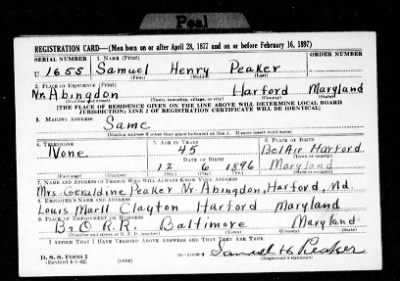 Peal
REGISTRATION CARD—(Men born on or after April 28, 1877 and on or before February 16, 1897)
SERIAL NUMBER 1. NAME (Print) ORDER NUMBER
U 1655 Samuel Henry Peaker
(First) (Middle) (Last)
2. PLACE OF RESIDENCE (Print)
Nr. Abingdon Harford Maryland
(Number and street) (Town, township, village, or city) (County) (State)
[THE PLACE OF RESIDENCE GIVEN ON THE LINE ABOVE WILL DETERMINE LOCAL BOARD
JURISDICTION; LINE 2 OF REGISTRATION CERTIFICATE WILL BE IDENTICAL]
3. MAILING ADDRESS
Same
[Mailing address if other than place indicated on line 2. If same insert word same]
4. TELEPHONE 5. AGE IN YEARS 6. PLACE OF BIRTH
None 45 Bel Air Harford
DATE OF BIRTH (Town or county)
12 6 1896 Maryland
(Mo.) (Day) (Yr.) (State or country)
7. NAME AND ADDRESS OF PERSON WHO WILL ALWAYS KNOW YOUR ADDRESS
Mrs. Geraldine Peaker Nr. Abingdon, Harford, Md.
8. EMPLOYER'S NAME AND ADDRESS
Louis Clayton Harford Maryland
9. PLACE OF EMPLOYMENT OR BUSINESS
B&O R.R. Baltimore Maryland
(Number and street or R. F. D. number) (Town) (County) (State)
I AFFIRM THAT I HAVE VERIFIED ABOVE ANSWERS AND THAT THEY ARE TRUE.
D. S. S. Form 1 Samuel H Peaker
(Revised 4-1-42) (over) (Registrant's signature)